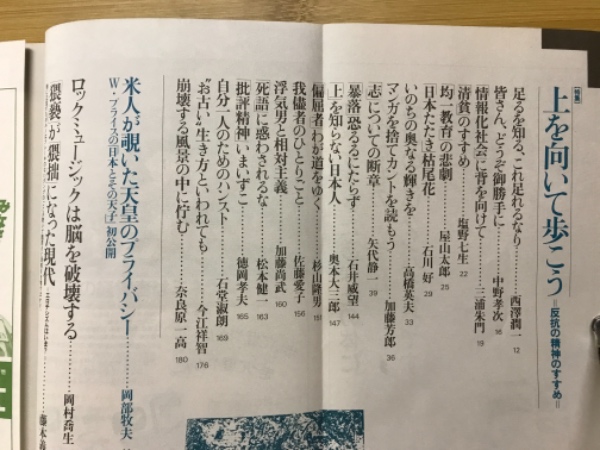 [特集]
上を向いて歩こう =反抗の精神のすすめ=
足るを知る、これ足れるなり………西澤潤一 12
皆さん、どうぞ御勝手に………中野孝次 16
情報化社会に背を向けて………三浦朱門 19
「清貧」のすすめ………塩野七生 22
「均一教育」の悲劇………屋山太郎 25
「日本」たたき枯尾花………石川好 29
いのちの奥なる輝きを………高橋英夫 33
マンガを捨てカントを読もう………加藤芳郎 36
「志」についての断章………矢代静一 39
「暴落」恐るるにたらず………石井威望 144
「上」を知らない日本人………奥本大三郎 147
偏屈者 わが道をゆく………杉山隆男 151
我儘者のひとりごと………佐藤愛子 156
浮気男と相対主義………加藤尚武 160
「死語」に惑わされるな………松本健一 163
「批評精神」いまいずこ………徳岡孝夫 165
自分一人のためのハンスト………石堂淑朗 169
"お古い"生き方といわれても………今江祥智 176
崩壊する風景の中に佇む………奈良原一高 180
米人が覗いた天皇のプライバシー………岡部牧夫
W・プライスの「日本とその天子」初公開
ロックミュージックは脳を破壊する………岡村喬生
「猥褻」が「猥拙」になった現代